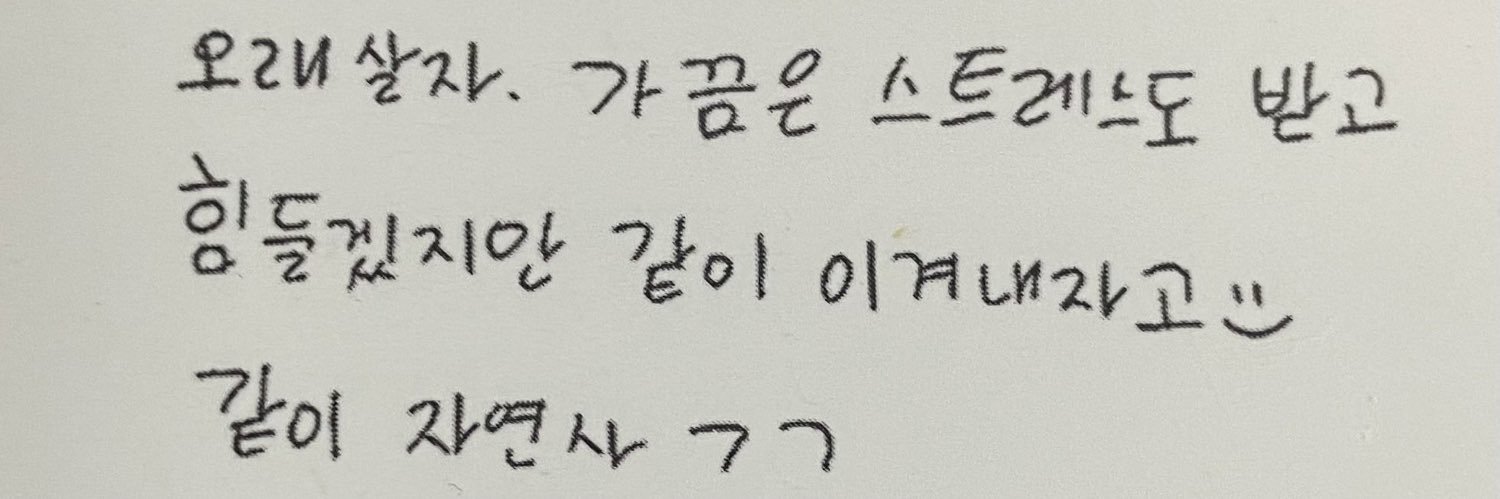 오래 살자. 가끔은 스트레스도 받고
힘들겠지만 같이 이겨내자고 :)
같이 자연사 ㄱㄱ